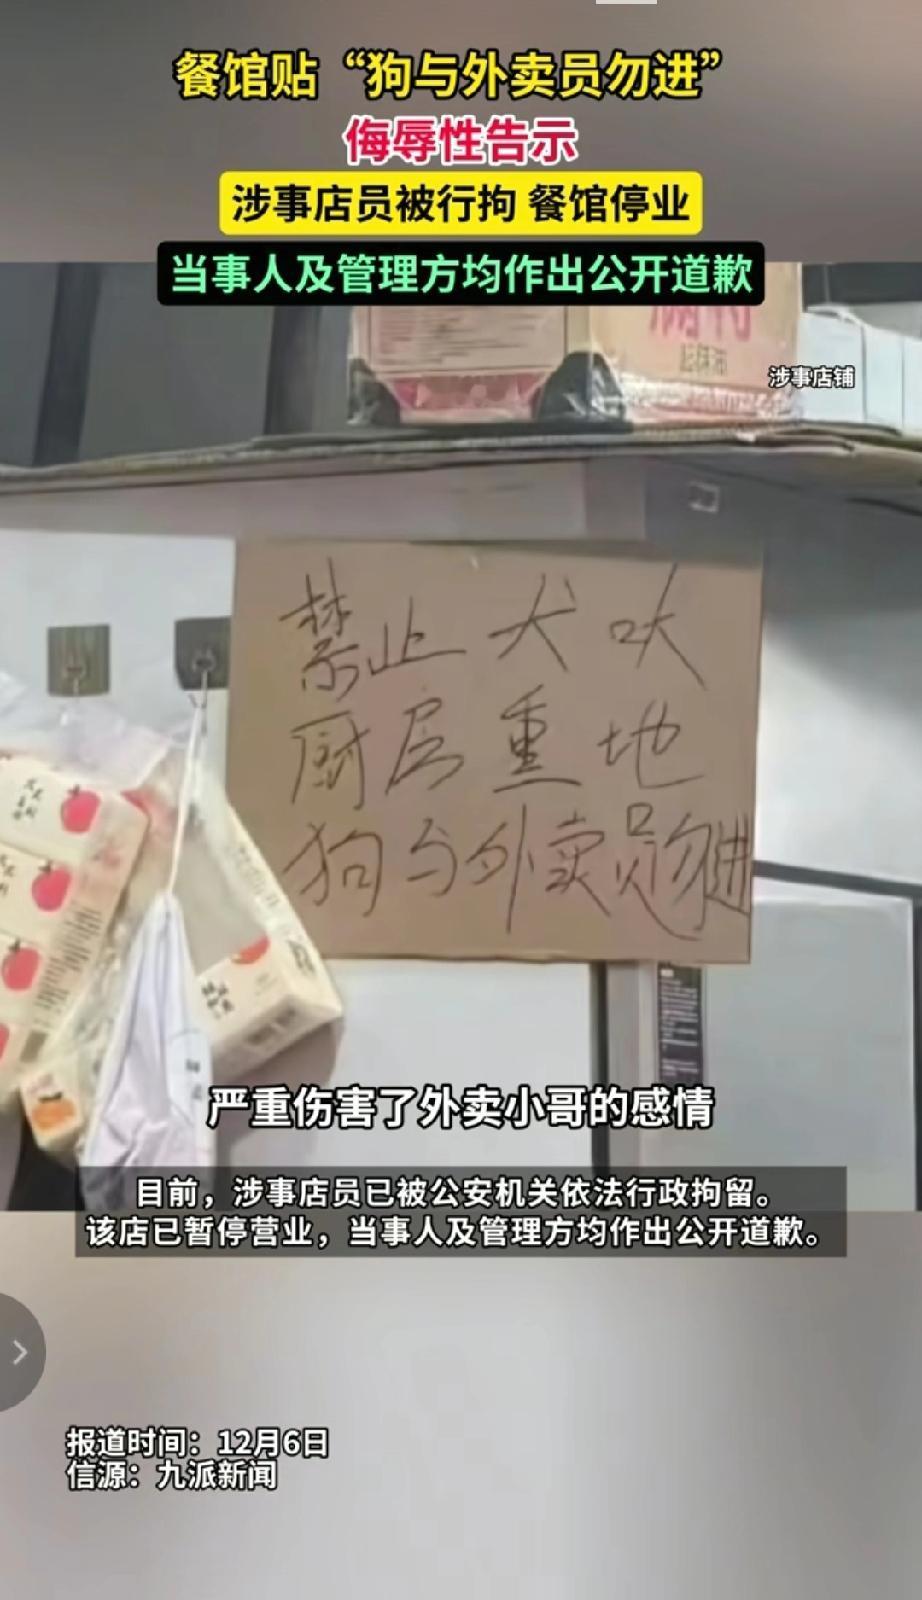 餐馆贴“狗与外卖员勿进”
侮辱性告示
涉事店员被行拘 餐馆停业
当事人及管理方均作出公开道歉
涉事店铺
禁止犬吠
厨房重地
狗与外卖员勿进
严重伤害了外卖小哥的感情
目前，涉事店员已被公安机关依法行政拘留。
该店已暂停营业，当事人及管理方均作出公开道歉。
报道时间：12月6日
信源：九派新闻